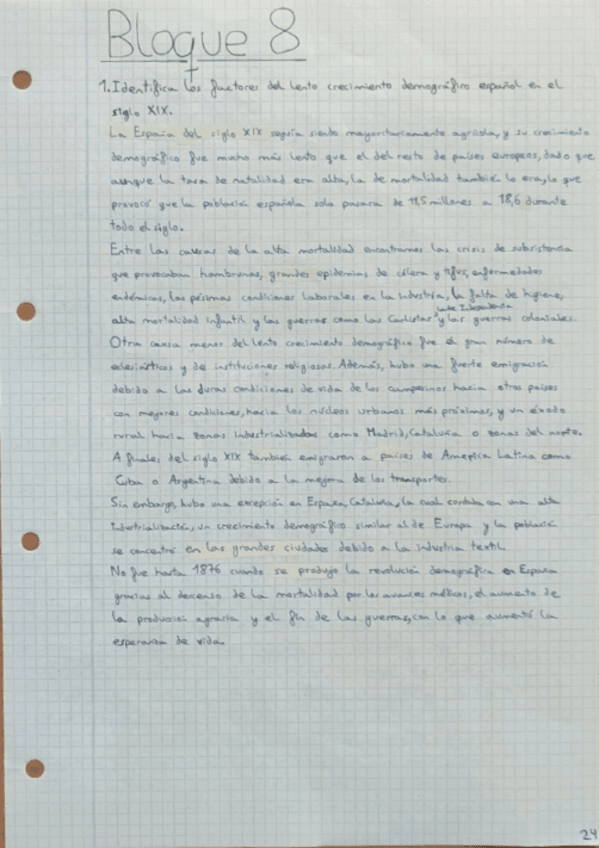 Bloque 8
1. Identifica los factores del lento crecimiento demográfico español en el
siglo XIX.
La España del siglo XIX seguía siendo mayoritariamente agrícola, y su crecimiento
demográfico fue mucho más lento que el del resto de países europeos, dado que
aunque la tasa de natalidad era alta, la de mortalidad también lo era, lo que
provocó que la población española solo pasara de 11,5 millones a 18,6 durante
todo el siglo.
Entre las causas de la alta mortalidad encontramos las crisis de subsistencia
que provocaban hambrunas, grandes epidemias de cólera y tifus, enfermedades
endémicas, las pésimas condiciones laborales en la industria, la falta de higiene,
alta mortalidad infantil y las guerras como las Carlistas y las guerras coloniales.
Otra causa menor del lento crecimiento demográfico fue el gran número de
eclesiásticos y de instituciones religiosas. Además, hubo una fuerte emigración
debido a las duras condiciones de vida de los campesinos hacia otros países
con mejores condiciones, hacia los núcleos urbanos más próximos, y un éxodo
rural hacia zonas industrializadas como Madrid, Cataluña o zonas del norte.
A finales del siglo XIX también emigraron a países de America Latina como
Cuba o Argentina debido a la mejora de los transportes.
Sin embargo, hubo una excepción en España, Cataluña, la cual contaba con una alta
industrialización, un crecimiento demográfico similar al de Europa y la población
se concentró en las grandes ciudades debido a la industria textil.
No fue hasta 1876 cuando se produjo la revolución demográfica en España
gracias al descenso de la mortalidad por los avances médicos, el aumento de
la producción agraria y el fin de las guerras, con lo que aumentó la
esperanza de vida.
24